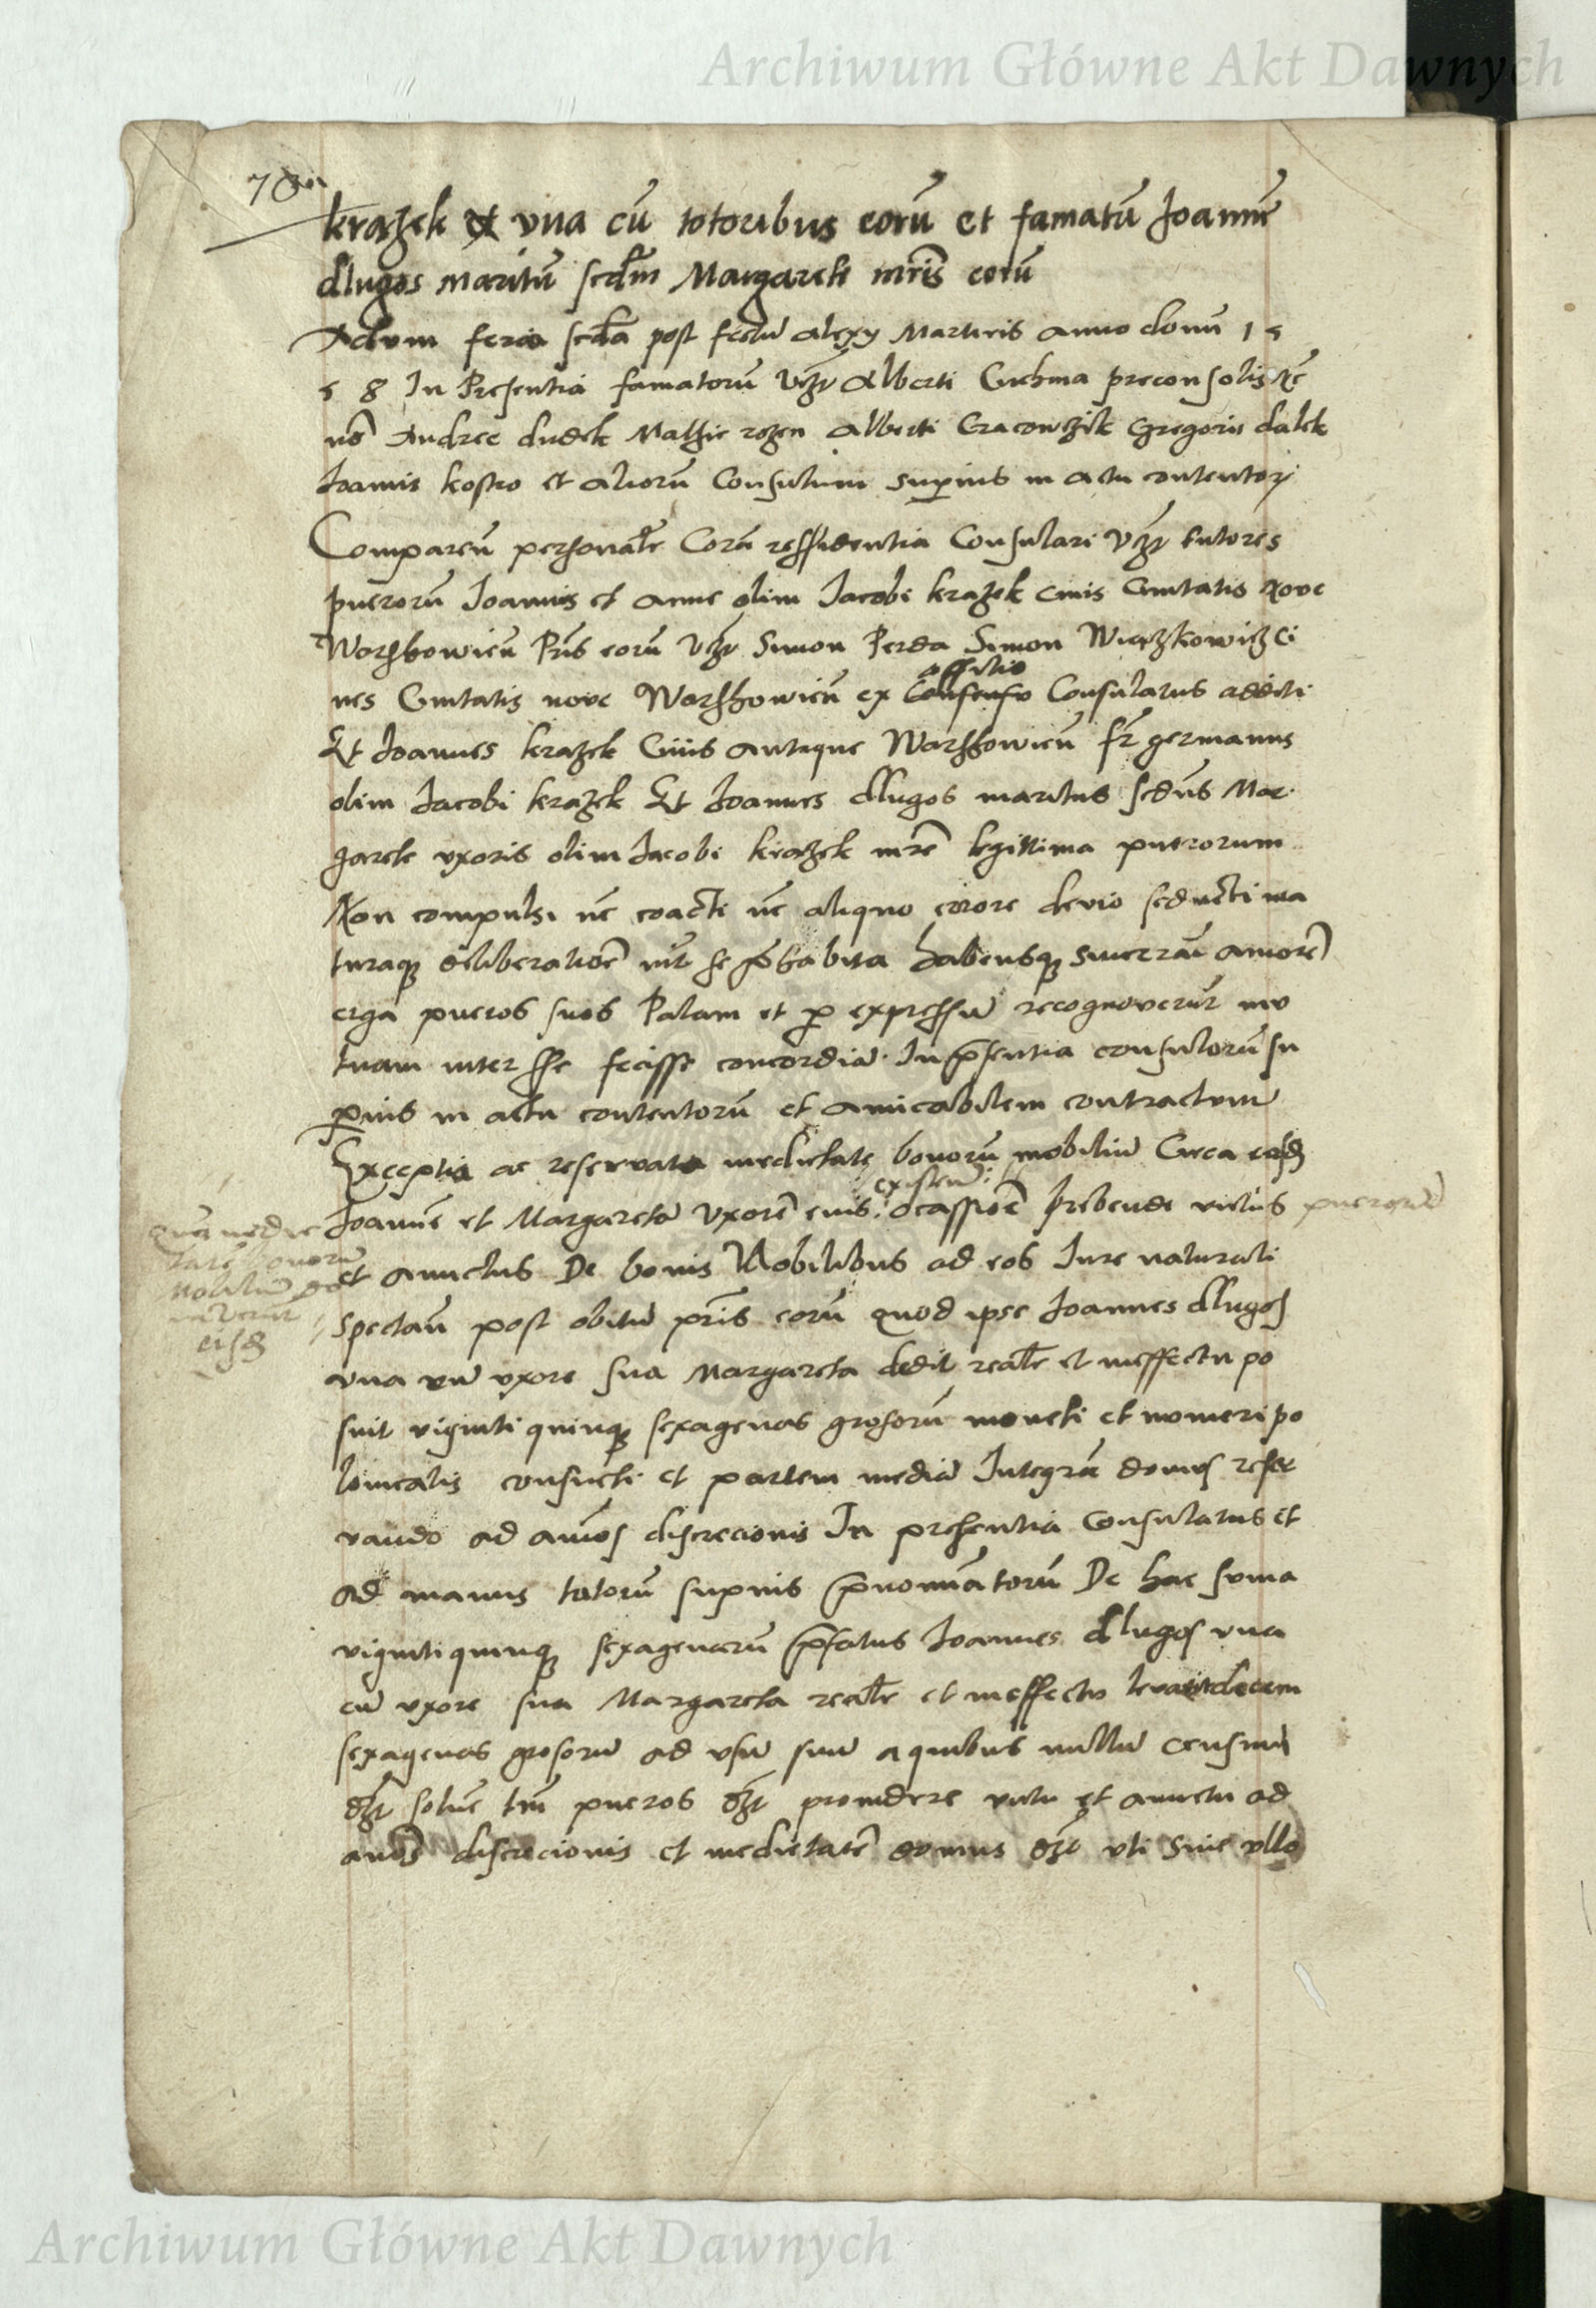 Archiwum Główne Akt Dawnych
krazek et vna cū totoribus eorū et famatū Joannē
dlugos maritū scdm Margarete mris eorū
Actum feria scda post festū Alexy Martiris Anno domi 1 5
5 8 In Presentia famatorū vzt Alberti preconsolis
Andree dudek Mathie rozen Alberti Cracowczik Gregorii dalek
Joannis kostro et aliorū Consulum superius in actu contentorz
Comparen personalr Corā ressidentia Consulari vzt tutores
puerorū Joannis et Anne olim Jacobi krazek civis Civitatis Nove
Warshowien Pris eorū vzt Simon Perda Simon Wiączkowicz Ci
officio
ves Civitatis nove Warshowien ex Consensu Consulatus additi
Et Joannes krazek Civis Antique Warshowien fr germanus
olim Jacobi krazek Et Joannes dlugos maritus scdus Mar
garete vxoris olim Jacobi krazek mre legittima puerorum
Non compulsi nec coacti nec aliquo errore devio seducti ma
turaq deliberatioe int se phabita habensq sincerā amorē
erga pueros suos Palam et p expressū recognoverūt mu
tuam inter sse fecisse concordiā In psentia consulorū su
perius in actu contentorū et amicabilem contractum
Exceptis ac reservata medietate bonorū mobiliū Circa eosd
existen
Joannē et Margaretā vxorē eius ocassioē prebende victus puerorū
et amictus De bonis Mobilibus ad eos Jure naturali
Mobiliū
eisd
spectan post obitū pris eorū quod ipse Joannes dlugos
vna cū vxore sua Margareta dedit realr et in effectu po
suit viginti quinq sexagenas grosorū moneti et numeri po
lonicalis consueti et partem mediā Integrā domus reser
vando ad annos discrecionis In presentia Consulatus et
ad manus tutorū superius pnominatorū De hac suma
viginti quinq sexagenarū pfatus Joannes dlugos vna
cū vxore sua Margareta realr et in effectu levavit decem
sexagenas grosorū ad vsū suū a quibus nullū censum
dzt solue tm pueros dzt providere victu et amictu ad
annos discrecionis et medietatē domus dzt vti sine vllo
Archiwum Główne Akt Dawnych